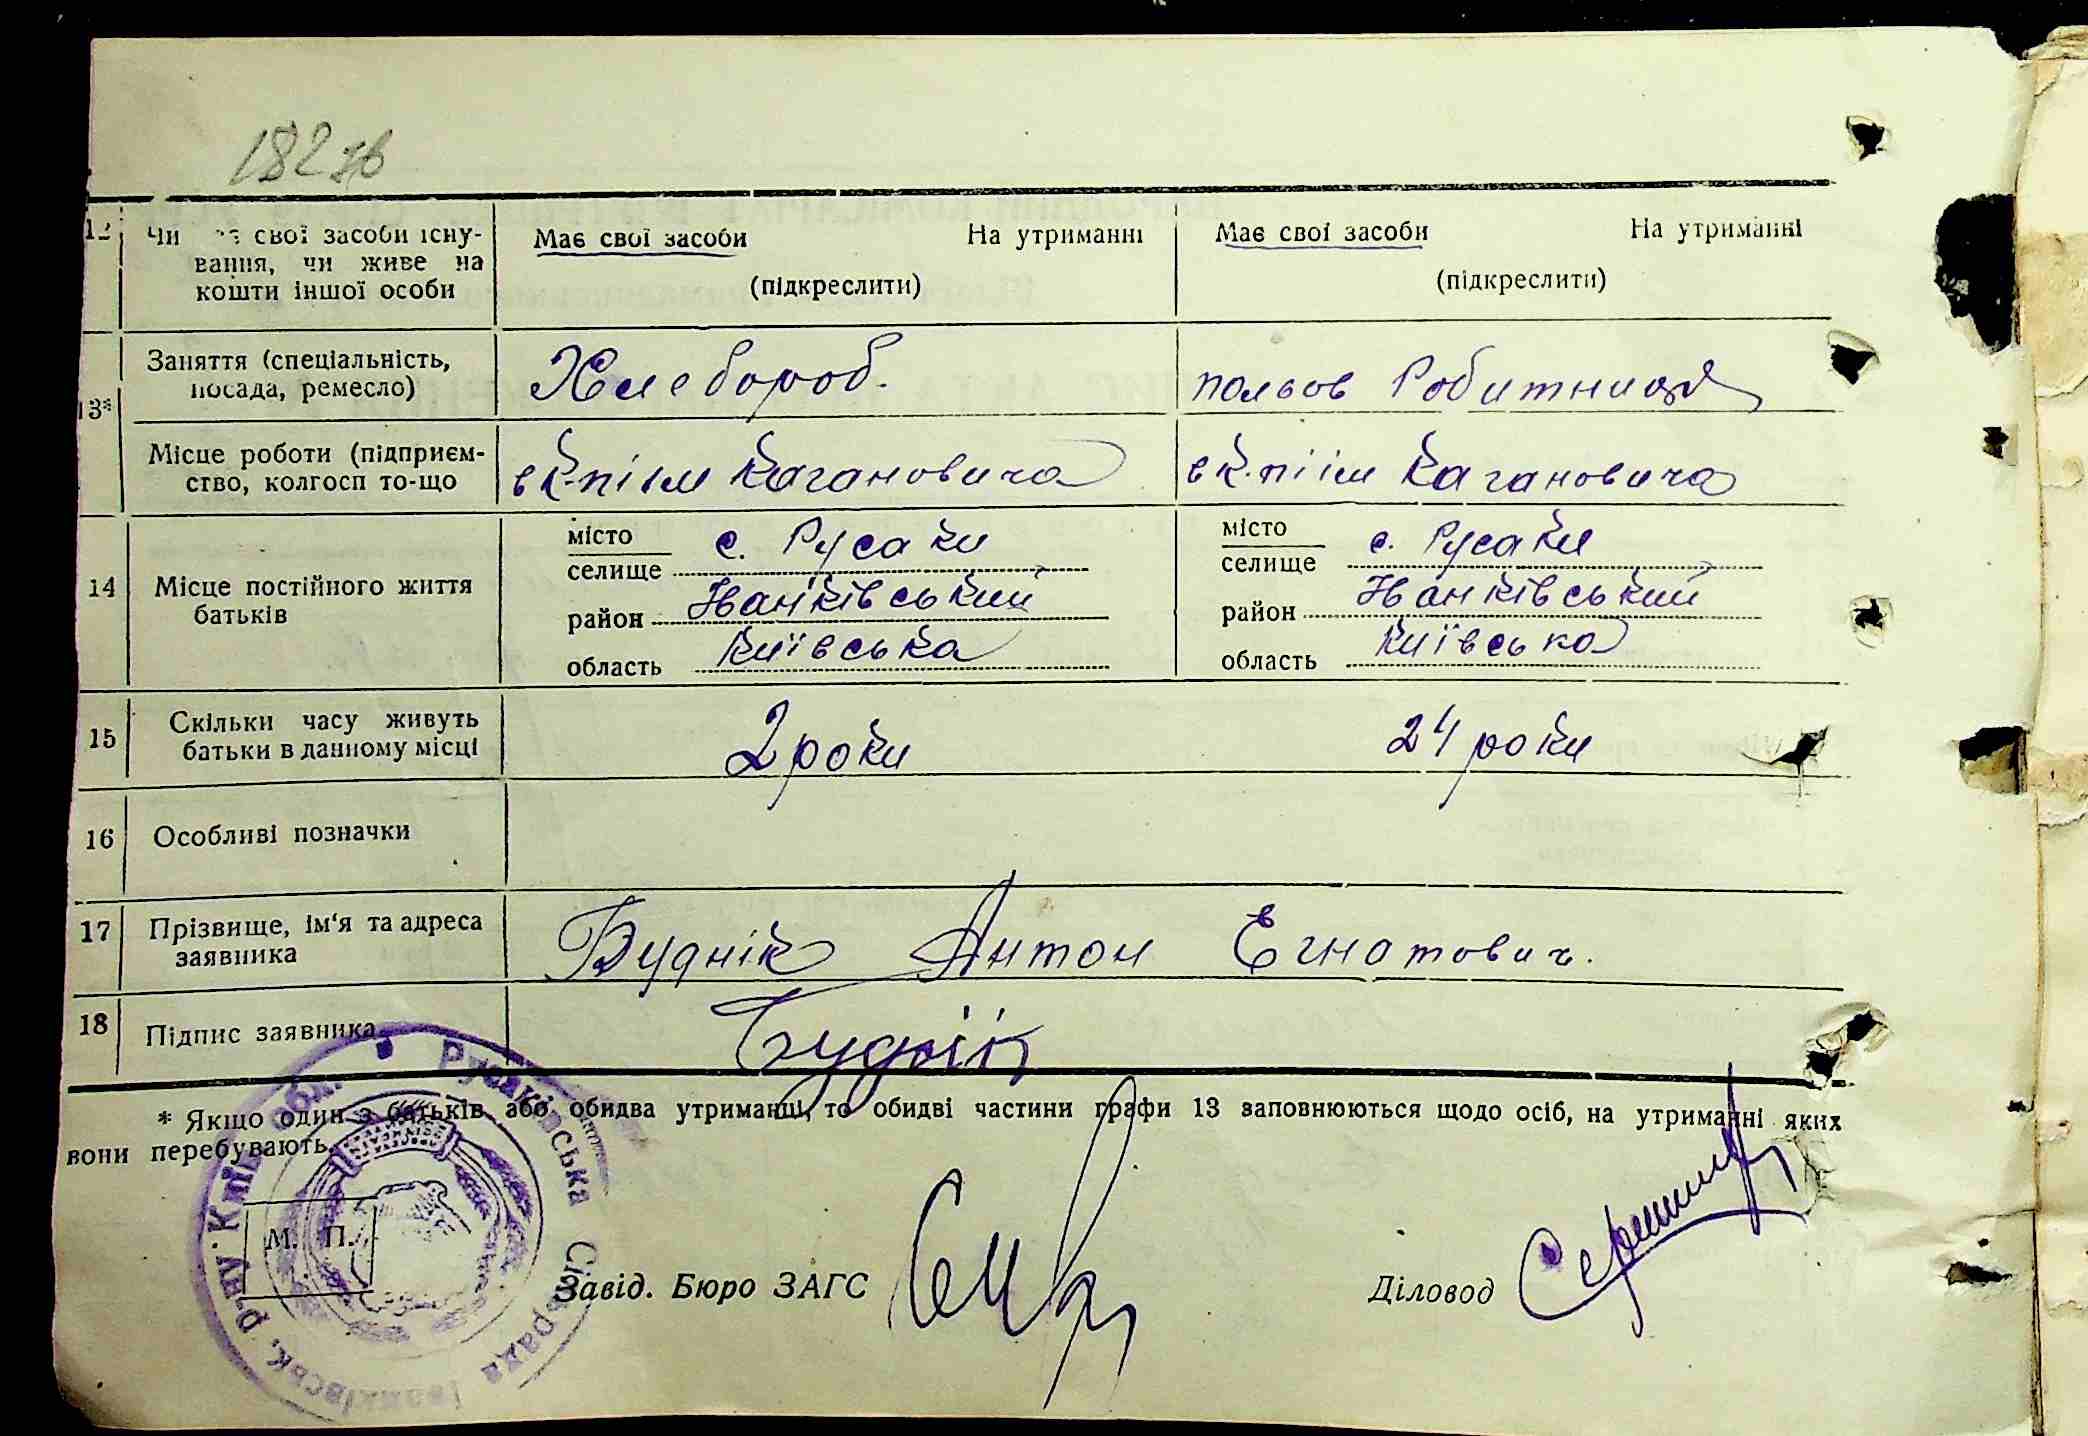 182 зв
12 Чи має свої засоби існу- Має свої засоби На утриманні Має свої засоби На утриманні
вання, чи живе на
кошти іншої особи (підкреслити) (підкреслити)
13* Заняття (спеціальність, Хлебороб. польов Робитниця
посада, ремесло)
Місце роботи (підприєм- в к-пі ім Кагановича в к-пі ім Кагановича
ство, колгосп то-що
14 Місце постійного життя батьків
місто с. Русаки місто с. Русаки
селище селище
район Іванківський район Іванківський
область Київська область Київська
15 Скільки часу живуть 2 роки 24 роки
батьки в данному місці
16 Особливі позначки
17 Прізвище, ім'я та адреса Буднік Антон Егнатович.
заявника
18 Підпис заявника Буднік
* Якщо один з батьків, або обидва утриманці, то обидві частини графи 13 заповнюються щодо осіб, на утриманні яких
вони перебувають.
М. П.
Завід. Бюро ЗАГС Діловод
Русаківська Сільрада Іванківськ. р-ну Київ. обл.